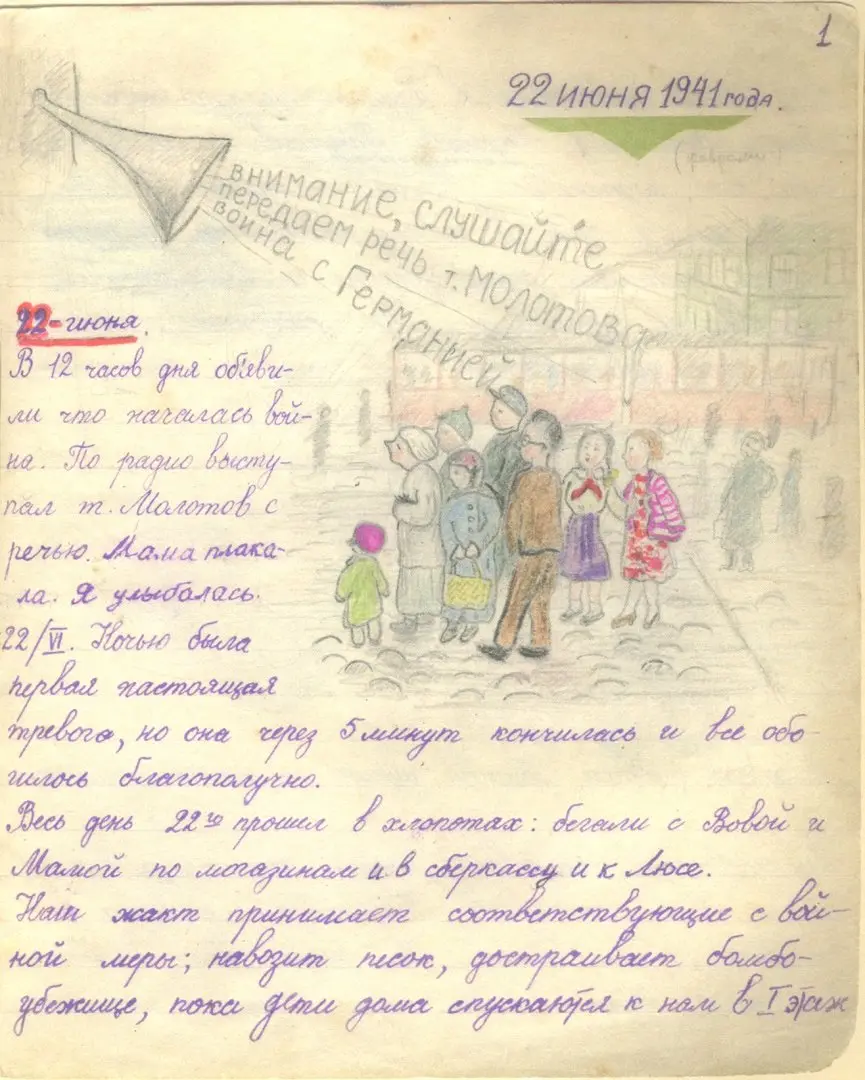 1
22 июня 1941 года.
внимание, слушайте
передаем речь т. Молотова
война с Германией
22-июня.
В 12 часов дня об'яви-
ли что началась вой-
на. По радио высту-
пал т. Молотов с
речью. Мама плака-
ла. Я улыбалась.
22/VI. Ночью была
первая настоящая
тревога, но она через 5 минут кончилась и все обо-
шлось благополучно.
Весь день 22го прошел в хлопотах: бегали с Вовой и
Мамой по магазинам и в сберкассу и к Люсе.
Наш жакт принимает соответствующие с вой-
ной меры; навозит песок, достраивает бомбо-
убежище, пока дети дома спускаются к нам в I этаж